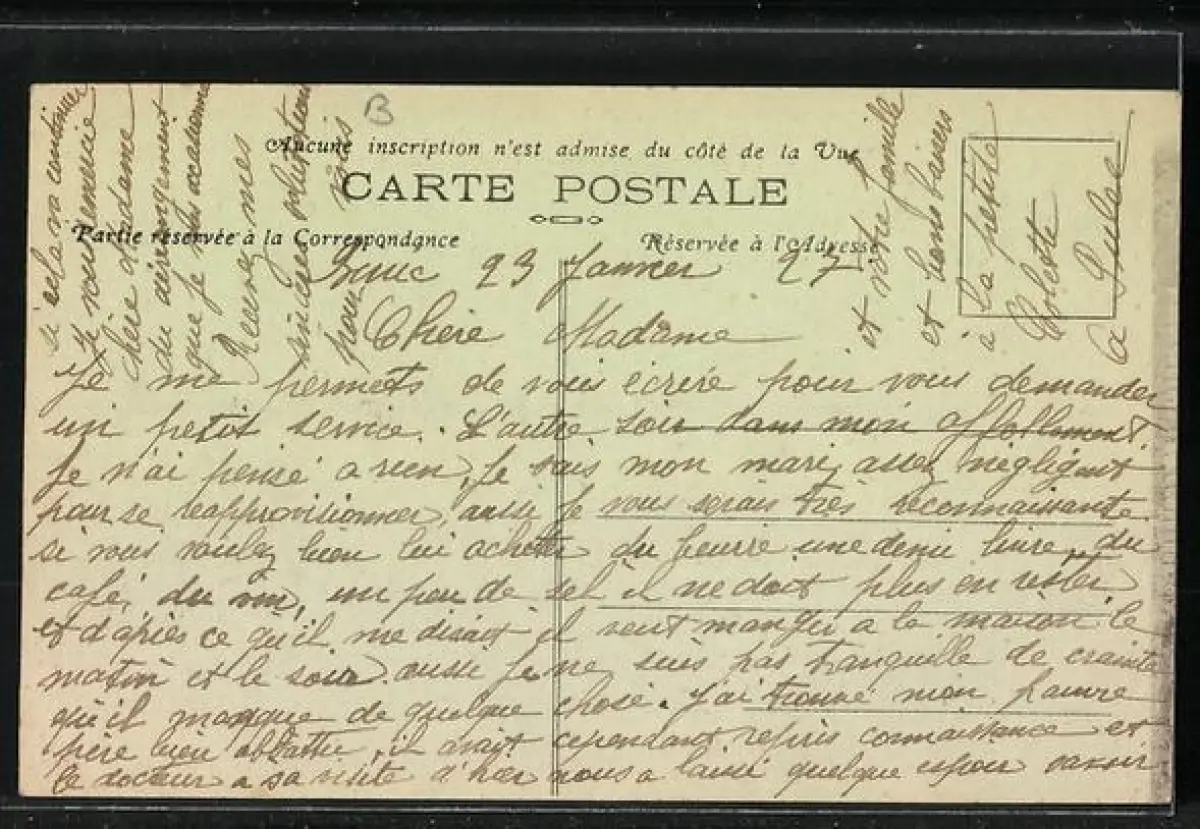 B
Aucune inscription n'est admise du côté de la Vue
CARTE POSTALE
Partie réservée à la Correspondance
Réservée à l'Adresse
23 Janvier 27
Chère Madame
Je me permets de vous écrire pour vous demander
un petit service. L'autre soir dans mon affollement
je n'ai pensé a rien, je sais mon mari assez négligent
pour se réapprovisionner, aussi je vous serais très reconnaissante
si vous voulez bien lui acheter du beurre une demi livre, du
café, du vin, un peu de sel il ne doit plus en rester,
et d'après ce qu'il me disait il veut manger a la maison le
matin et le soir aussi je ne suis pas tranquille de crainte
qu'il manque de quelque chose. J'ai trouvé mon pauvre
père bien abbattu, il avait cependant repris connaissance et
le docteur a sa visite d'hier nous a laissé quelque espoir savoir
si cela va continuer
Je vous remercie
chère Madame
du dérangement
que je vous occasionne
Recevez mes
sincères salutations
pour
et votre famille
et bons baisers
à la petite
Colette